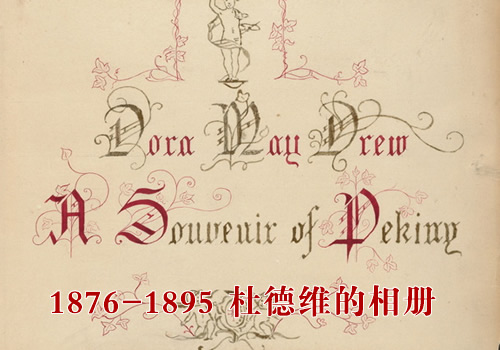 Dora May Drew
A Souvenir of Peking
1876-1895 杜德维的相册